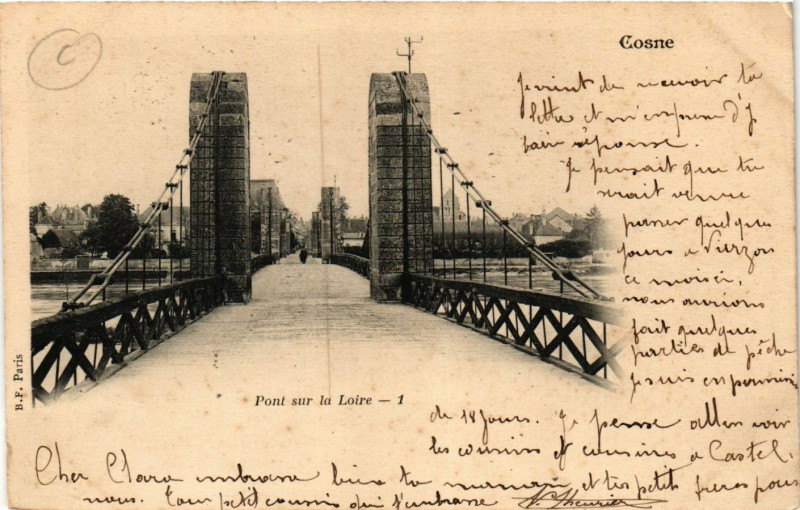 C
Cosne
Je vient de recevoir ta
lettre et m'empresse d'y
faire réponse.
Je pensait que tu
serait venue
passer quelques
jours a Vierzon
ce mois ci,
nous aurions
fait quelques
parties de pêche
Je suis en permission
de 18 jours. Je pense aller voir
les cousins et cousines a Castel.
Cher Clara embrasse bien ta maman et tes petits freres pour
nous. Ton petit cousin qui t'embrasse
Pont sur la Loire — 1
B.F. Paris